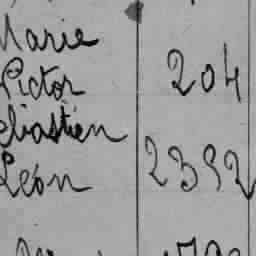 Marie
Victor 204
Sébastien
Léon 2392